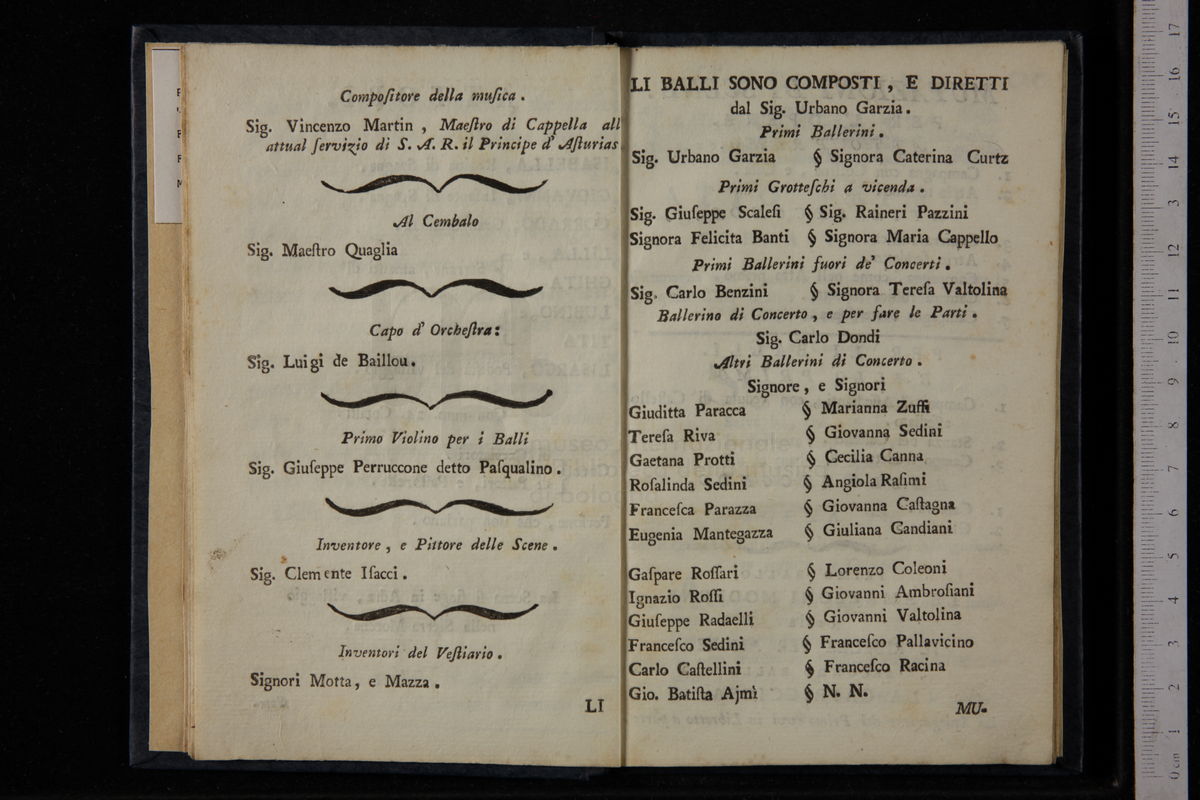 Compoſitore della muſica.
Sig. Vincenzo Martin, Maeſtro di Cappella all
attual ſervizio di S. A. R. il Principe d' Aſturias.
Al Cembalo
Sig. Maeſtro Quaglia
Capo d' Orcheſtra:
Sig. Luigi de Baillou.
Primo Violino per i Balli
Sig. Giuſeppe Perruccone detto Paſqualino.
Inventore, e Pittore delle Scene.
Sig. Clemente Iſacci.
Inventori del Veſtiario.
Signori Motta, e Mazza.
LI
LI BALLI SONO COMPOSTI, E DIRETTI
dal Sig. Urbano Garzia.
Primi Ballerini.
Sig. Urbano Garzia § Signora Caterina Curtz
Primi Grotteſchi a vicenda.
Sig. Giuſeppe Scaleſi § Sig. Raineri Pazzini
Signora Felicita Banti § Signora Maria Cappello
Primi Ballerini fuori de' Concerti.
Sig. Carlo Benzini § Signora Tereſa Valtolina
Ballerino di Concerto, e per fare le Parti.
Sig. Carlo Dondi
Altri Ballerini di Concerto.
Signore, e Signori
Giuditta Paracca § Marianna Zuffi
Tereſa Riva § Giovanna Sedini
Gaetana Protti § Cecilia Canna
Roſalinda Sedini § Angiola Raſimi
Franceſca Parazza § Giovanna Caſtagna
Eugenia Mantegazza § Giuliana Candiani
Gaſpare Roſſari § Lorenzo Coleoni
Ignazio Roſſi § Giovanni Ambroſiani
Giuſeppe Radaelli § Giovanni Valtolina
Franceſco Sedini § Franceſco Pallavicino
Carlo Caſtellini § Franceſco Racina
Gio. Batiſta Ajmi § N. N.
MU-